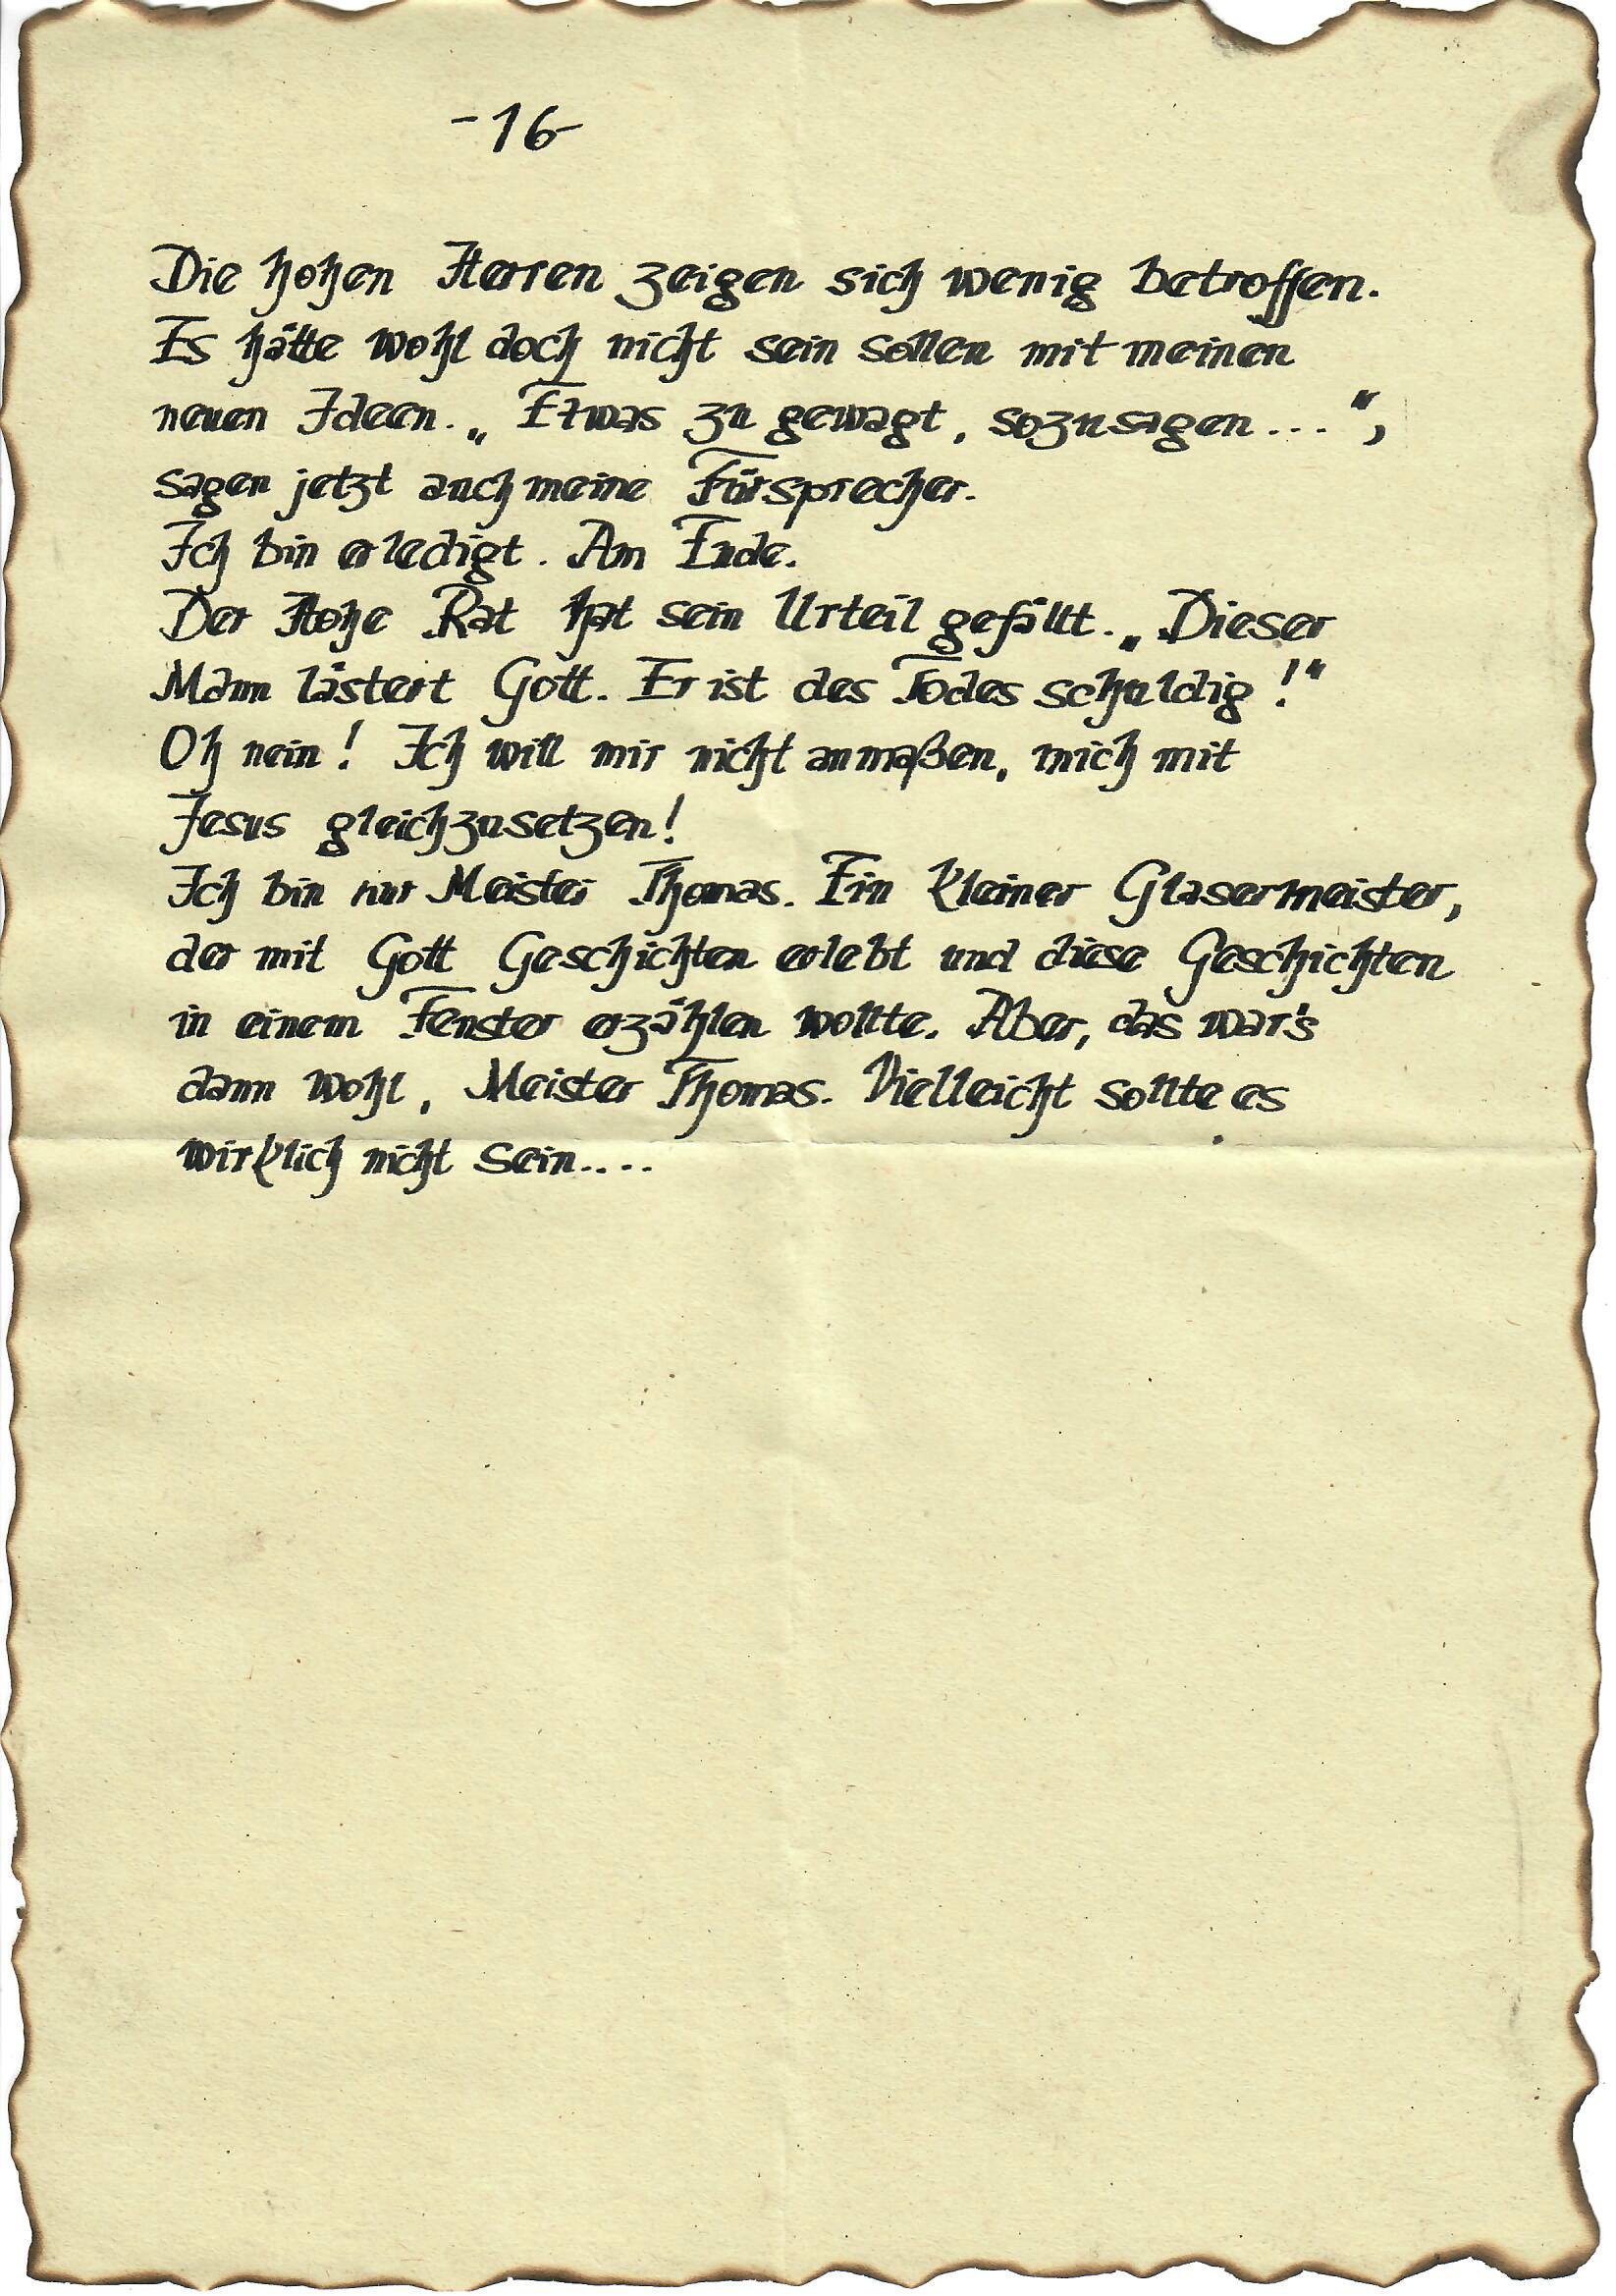 -16-
Die hohen Herren zeigen sich wenig betroffen.
Es hätte wohl doch nicht sein sollen mit meinen
neuen Ideen. „Etwas zu gewagt, sozusagen...“,
sagen jetzt auch meine Fürsprecher.
Ich bin erledigt. Am Ende.
Der Hohe Rat hat sein Urteil gefällt. „Dieser
Mann lästert Gott. Er ist des Todes schuldig!“
Oh nein! Ich will mir nicht anmaßen, mich mit
Jesus gleichzusetzen!
Ich bin nur Meister Thomas. Ein kleiner Glasermeister,
der mit Gott Geschichten erlebt und diese Geschichten
in einem Fenster erzählen wollte. Aber, das war's
dann wohl, Meister Thomas. Vielleicht sollte es
wirklich nicht sein....